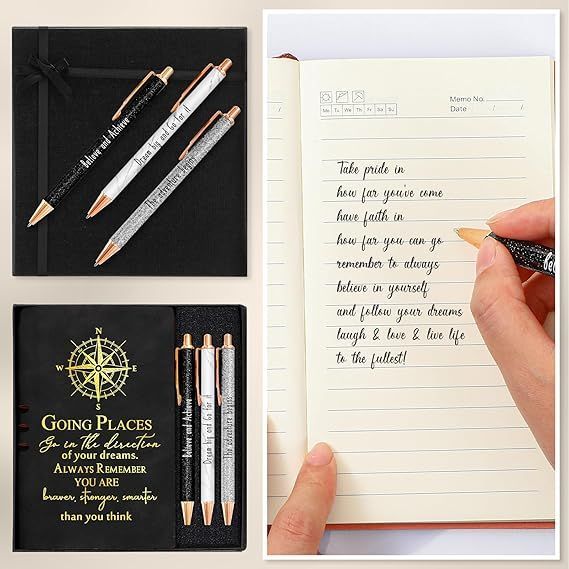 Believe and Achieve
Dream big and Go for it
The adventure begins
N
W E
S
GOING PLACES
Go in the direction
of your dreams.
ALWAYS REMEMBER
YOU ARE
braver, stronger, smarter
than you think
Believe and Achieve
Dream big and Go for it
The adventure begins
Memo No.
Mo Tu We Th Fr Sa Su
Date / /
Take pride in
how far you've come
have faith in
how far you can go
remember to always
believe in yourself
and follow your dreams
laugh & love & live life
to the fullest!